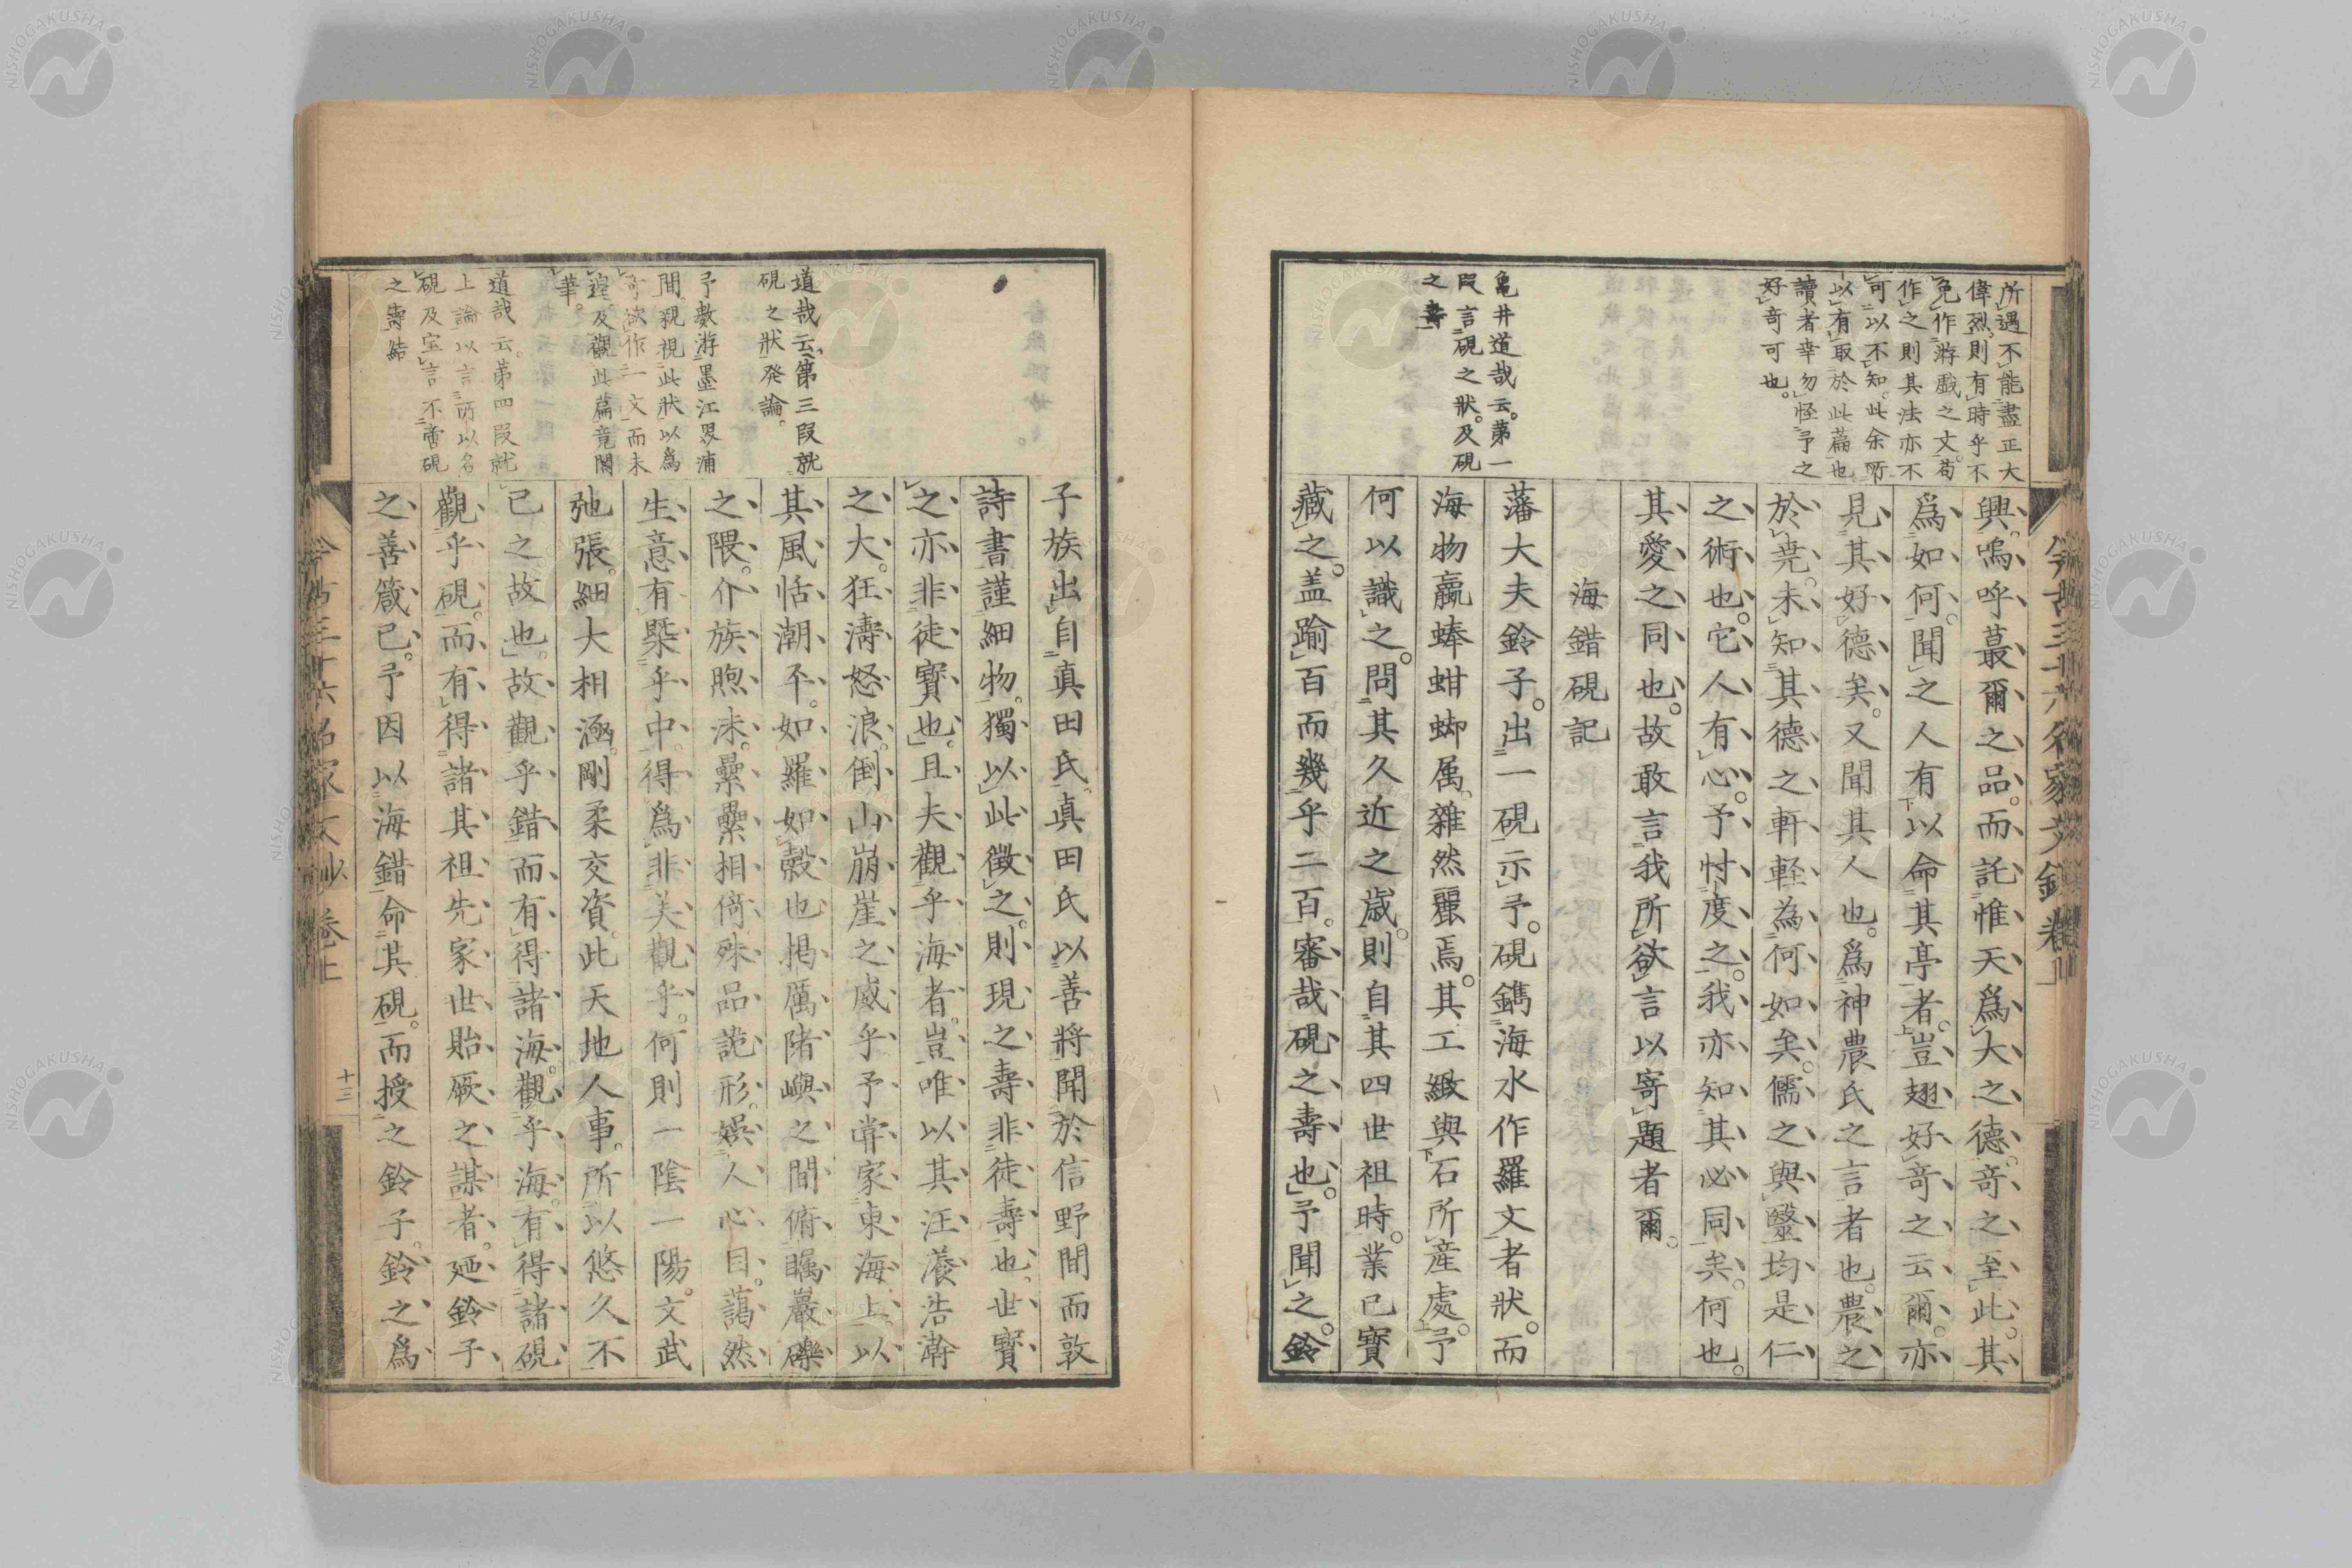 所遇不能盡正大
偉烈則有時乎不
免作游戲之文苟
作之則其法亦不
可以不知此余所
以有取於此篇也
讀者幸勿怪予之
好奇可也。
龜井道哉云。第一
段言硯之狀。及硯
之壽
興。嗚呼蕞爾之品。而託惟天爲大之德。奇之至。此其
爲如何。聞之人有以命其亭者。豈翅好奇之云爾。亦
見其好德矣。又聞其人也。爲神農氏之言者也。農之
於堯。未知其德之軒軽為何如矣。儒之與毉均是仁
之術也。它人有心。予忖度之。我亦知其必同矣。何也。
其愛之同也。故敢言我所欲言以寄題者爾。
海錯硯記
藩大夫鈴子。出一硯示予。硯鐫海水作羅文者狀。而
海物蠃蜯蚶蜐属。雜然羅焉。其工緻與石所產處。予
何以識之。問其久近之歲。則自其四世祖時。業已寶
藏之。盖踰百而幾乎二百。審哉硯之壽也。予聞之。鈴
今古三十六名家文鈔 卷上
道哉云第三段就
硯之狀発論。
予數游墨江界浦
間親視此狀以為
奇欲作一文而未
遑及觀此篇竟閣
筆。
道哉云。第四段就
上論以言所以名
硯及宝言不啻硯
之壽結
子族出自真田氏。真田氏以善將聞於信野間而敦
詩書謹細物。獨以此徵之。則現之壽非徒壽也、世寶
之亦非徒寶也。且夫觀乎海者。豈唯以其汪瀁浩瀚
之大。狂濤怒浪。倒山崩崖之威乎予嘗家東海上。以
其風恬潮平。如羅如縠也掲厲陼嶼之間俯矚巖礫
之隈。介族煦沫。纍纍相倚殊品詭形。娛人心目。藹然
生意有槩乎中。得爲非美觀乎。何則一陰一陽。文武
弛張。細大相涵。剛柔交資。此天地人事。所以悠久不
已之故也。故觀乎錯而有得諸海。觀乎海。有得諸硯
觀乎硯。而有得諸其祖先家世貽厥之謀者。廼鈴子
之善箴已。予因以海錯命其硯。而授之鈴子。鈴之爲
今古三十六名家文鈔 卷上
十三